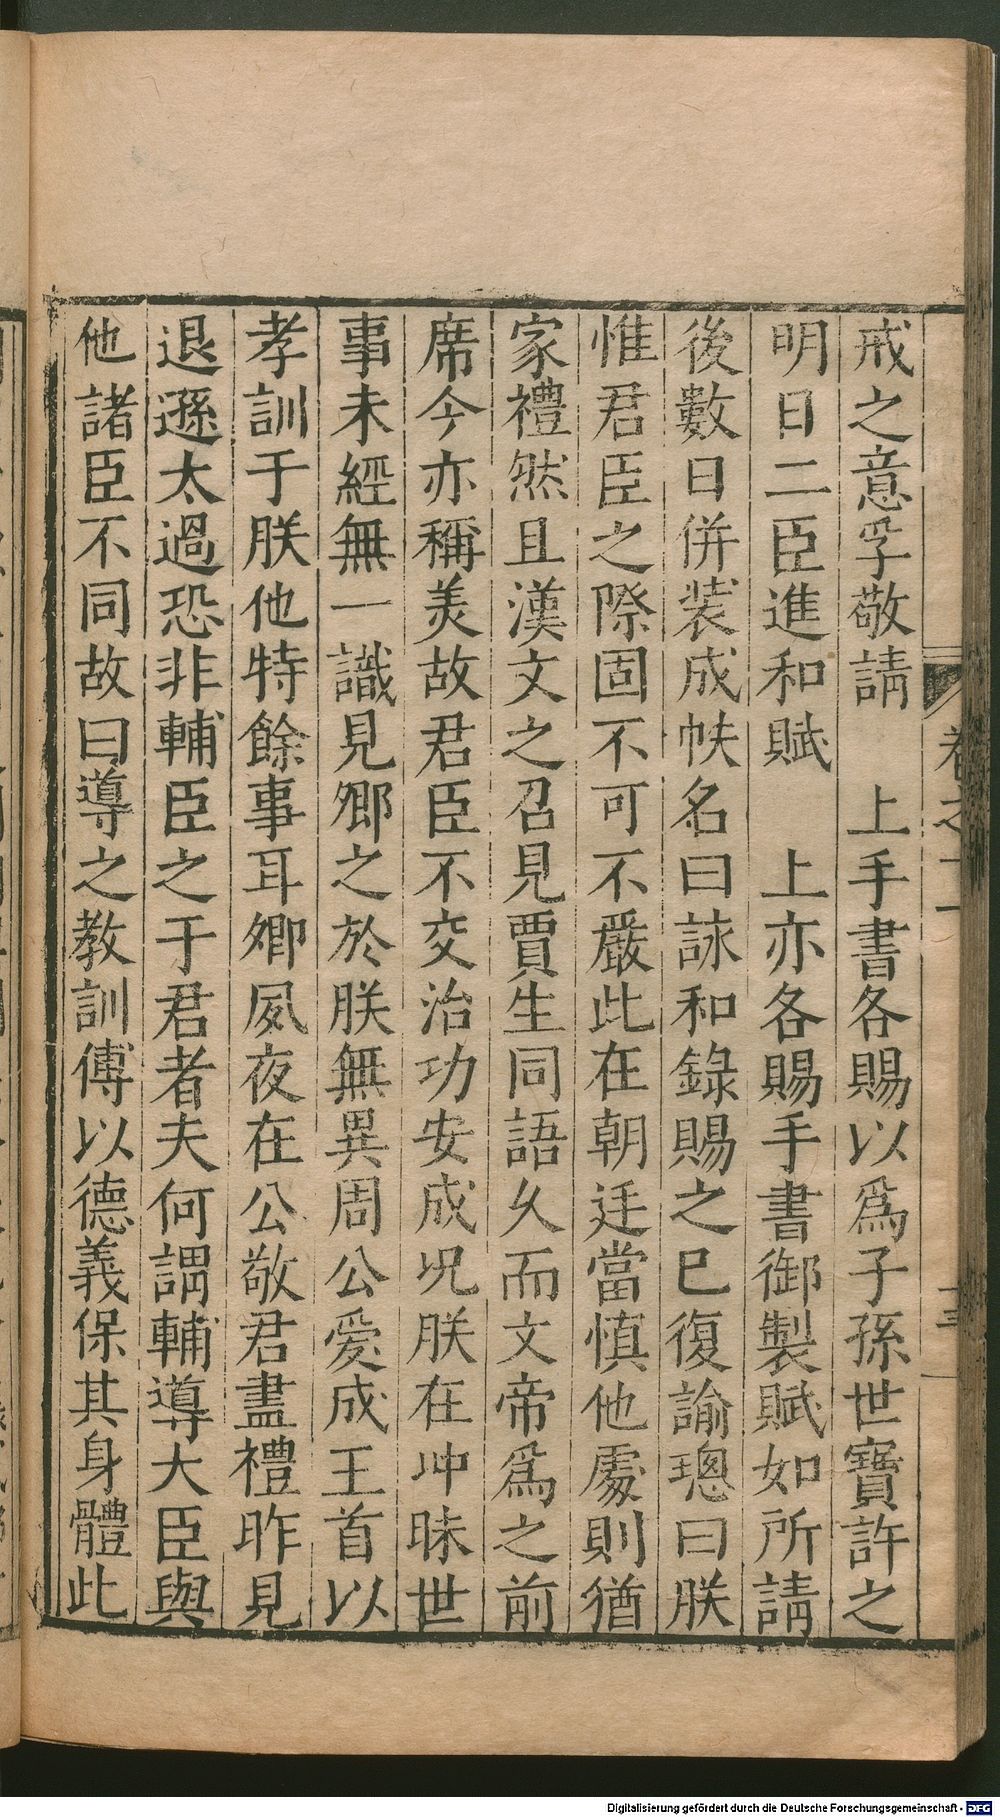 戒之意孚敬請　上手書各賜以爲子孫世寶許之
明日二臣進和賦　上亦各賜手書御製賦如所請
後數日併装成帙名曰詠和錄賜之已復諭璁曰朕
惟君臣之際固不可不嚴此在朝廷當慎他處則猶
家禮然且漢文之召見賈生同語久而文帝爲之前
席今亦稱美故君臣不交治功安成况朕在冲昧世
事未經無一識見卿之於朕無異周公愛成王首以
孝訓于朕他特餘事耳卿夙夜在公敬君盡禮昨見
退遜太過恐非輔臣之于君者夫何謂輔導大臣與
他諸臣不同故曰導之教訓傅以德義保其身體此
Digitalisierung gefördert durch die Deutsche Forschungsgemeinschaft - DFG